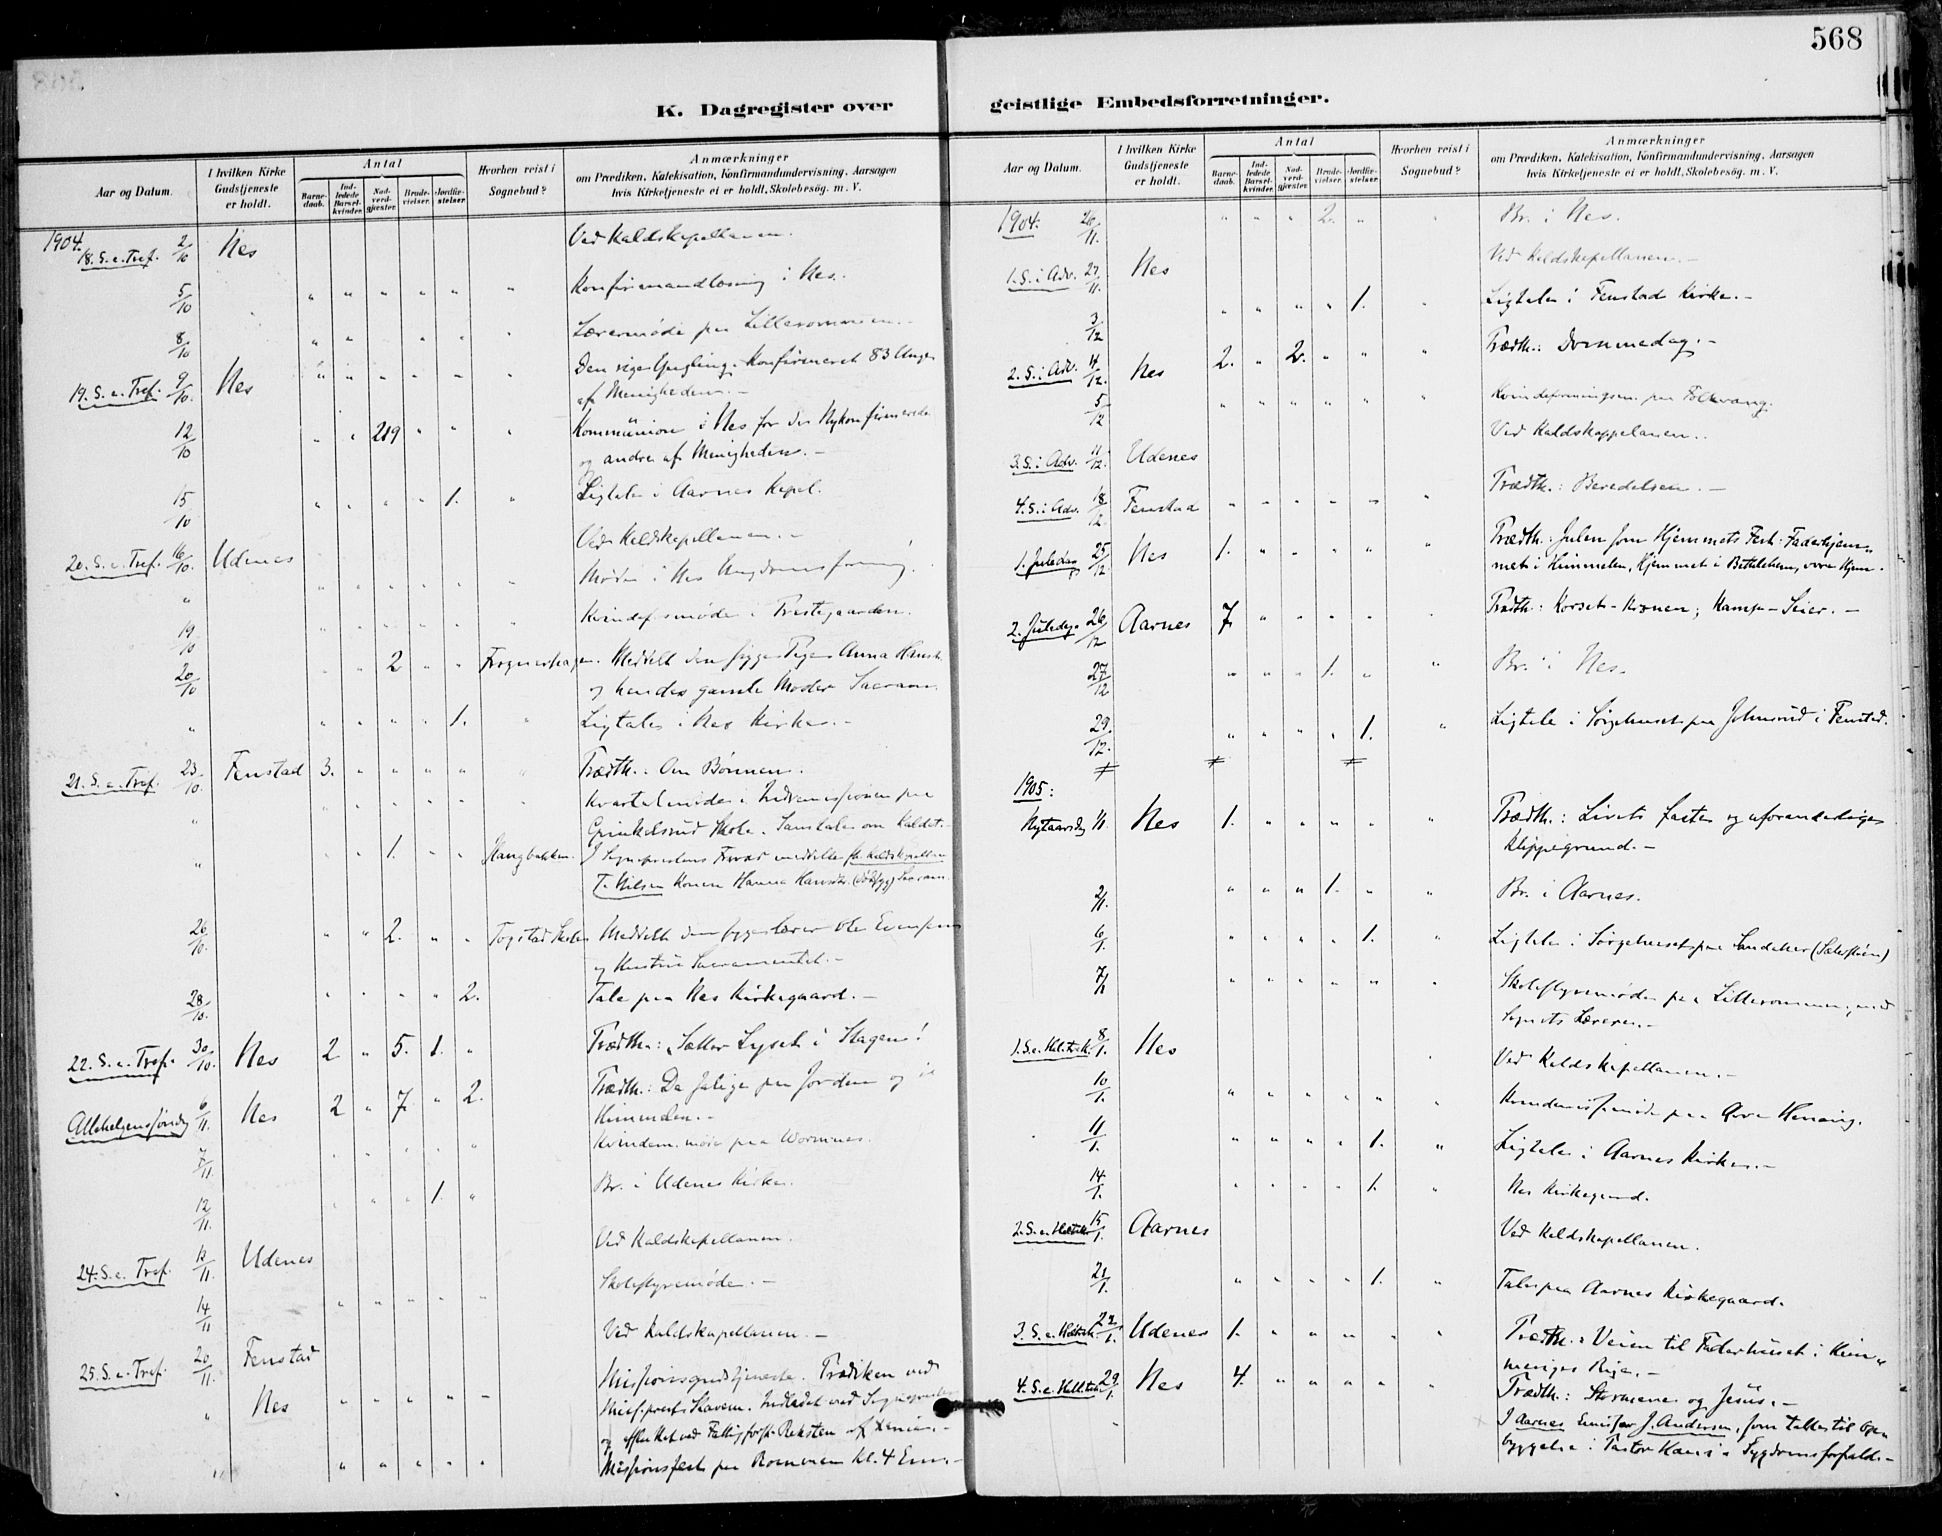 568
K. Dagregister over
Aar og Datum.
I hvilken Kirke Gudstjeneste er holdt.
Antal
Barne-daab.
Ind-ledede Barsel-kvinder.
Nad-verd-gjæster.
Brude-vielser.
Jordfæ-stelser.
Hvorhen reist i Sognebud?
Anmærkninger
om Prædiken, Katekisation, Konfirmandundervisning, Aarsagen
hvis Kirketjeneste ei er holdt, Skolebesøg. m. V.
1904. 18. S. e. Tref. 2/10 Nes Ved Kaldskapellanen.
5/10 " " " " " " Konfirmandlæsning i Nes.
8/10 " " " " " Lærermøde paa Lillerommen.
19. S. e. Tref. 9/10 Nes " " " " " " Den rige Yngling. Konfirmeret 83 Unge
af Menigheden.-
12/10 " " 219 " " " Kommunion i Nes for de Nykonfirmerede
og andre af Menigheden. -
15/10 " " " " 1. " Ligtale i Aarnes Kapel.
20. S. e. Tref. 16/10. Udenes Ved Kaldskapellanen. -
" Møde i Nes Ungdomsforening.
19/10 Kvindef.smøde i Prestegaarden.
20/10 2 " " Frognerhagen. Meddelt den syge Pige Anna Hansd.
og hendes gamle Moder Sacram.
" " " " " 1. " Ligtale i Nes Kirke. -
21. S. e. Tref. 23/10. Fenstad 3. " " " " Prædth.: Om Bønnen.
" Kvartalmøde i Indremissionen paa
Grinkelsrud Skole. Samtale om Kaldet.
" " " 1. " " Haugbakken. I Sogneprestens Fravær meddelte Hr. Kaldskapellan
T. Nilsen Konen Hanna Hansdtr. (dødssyg) Sacram.
26/10. " " 2. " " Togstad Skole Meddelt den syge Lærer Ole Evensen
og Hustru Sacramentet. -
28/10. " " " " 2. Tale paa Nes Kirkegaard. -
22. S. e. Tref. 30/10. Nes 2 " 5. 1. " Prædth.: Sætter Lyset i Stagen!
Allehelgenssøndag 6/11. Nes 2 " 7. " 2. Prædth.: De salige paa Jorden og i
Himmelen. -
7/11. " " " " " Kvindem.møde paa Wormnes.
12/11. " " " 1. " Br. i Udenes Kirke.
24. S. e. Tref. 13/11. Udenes Ved Kaldskapellanen.
14/11 " " " " " Skolestyremøde. -
25. S. e. Tref. 20/11. Fenstad Ved Kaldskapellanen. -
" Nes " " " " " Missionsgudstjeneste. Prædiken ved
Miss.prest Skaven. Indledet ved Sognepresten
og afsluttet ved Fattigforst. Reksten af Xania. -
" " " " " " Missionsfest paa Rommen Kl. 4 Em. -
geistlige Embedsforretninger.
Aar og Datum.
I hvilken Kirke Gudstjeneste er holdt.
Antal
Barne-daab.
Ind-ledede Barsel-kvinder.
Nad-verd-gjæster.
Brude-vielser.
Jordfæ-stelser.
Hvorhen reist i Sognebud?
Anmærkninger
om Prædiken, Katekisation, Konfirmandundervisning, Aarsagen
hvis Kirketjeneste ei er holdt, Skolebesøg. m. V.
1904. 26/11. " " " 2. " " Br. i Nes.
1. S. i Adv. 27/11. Nes Ved Kaldskapellanen. -
3/12 " " " " 1. " Ligtale i Fenstad Kirke. -
2. S. i Adv. 4/12. Nes 2. " 2. " " " Prædth.: Dommedag. -
5/12 " " " " " " Kvindeforeningsm. paa Folkvang.
3. S. i Adv. 11/12. Udenes Ved Kaldskappelanen..
4. S. i Adv. 18/12. Fenstad " " " " " " Prædth.: Beredelsen. -
1. Juledag 25/12. Nes 1. " " " " " Prædth.: Julen som Hjemmets Fest: Faderhjem-
met i Himmelen, Hjemmet i Bethlehem, vore Hjem.
2. Juledag 26/12 Aarnes 7 " " " " " Prædth.: Korset - Kronen; Kamp - Seier. -
27/12 " " " 1. " " Br. i Nes.
29/12. " " " " 1. " Ligtale i Sørgehuset paa Johnsrud i Fenstad.
1905:
Nytaarsdg 1/1. Nes 1. " " " " " Prædth.: Livets faste og uforanderlige
Klippegrund. -
2/1. " " " 1. " " Br. i Aarnes.
6/1. " " " " 1. " Ligtale i Sørgehuset paa Sandaker
7/1 " " " " " " Skolestyremøde paa Lillerommen, med
Sognets Lærere. -
1. S. e. Hel.tr.k. 8/1. Nes Ved Kaldskapellanen. -
10/1. " " " " " " Kvindemissf.møde paa Øvre Henning.
11/1. " " " " 1. " Ligtale i Aarnes Kirke. -
14/1. " " " " 1. " Nes Kirkegaard.
2. S. e. Heltrk. 15/1. Aarnes Ved Kaldskapellanen.
21/1. " " " " 1. " Tale paa Aarnes Kirkegaard.
3. S. e. Heltrk. 22/1. Udenes 1. " " " " " Prædth.: Veien til Faderhuset i Him-
meriges Rige. -
4. S. e. Hell.trk. 29/1. Nes 4. " " " " " Prædth.: Stormene og Jesus. -
" I Aarnes Emissær J. Andersen, som talte til Op-
byggelse i Pastor Sygdomsforfald. -